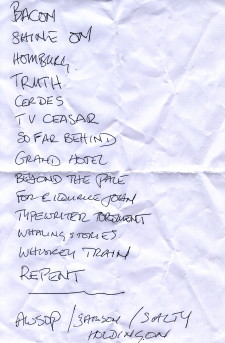 BACON
SHINE ON
HOMBURG
TRUTH
CERDES
TV CEASAR
SO FAR BEHIND
GRAND HOTEL
BEYOND THE PALE
FOR LIQUORICE JOHN
TYPEWRITER TORMENT
WHALING STORIES
WHISKEY TRAIN
REPENT
AWSOP / BARNSON / SALTY
HOLDING ON